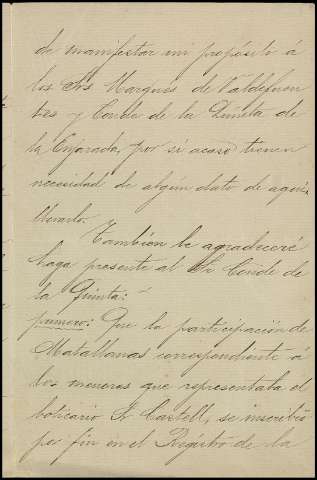 de manifestar mi propósito á
los Srs Marques de Valdefuen
tes y Conde de la Quinta de
la Enjarada, por si acaso tienen
necesidad de algún dato de aqué
llevarlo.
También le agradeceré
haga presente al Sr Conde de
la Quinta:
primero: Que la participación de
Matallanas correspondiente á
los menores que representaba el
boticario Sr Castell, se inscribió
por fin en el Registro de la